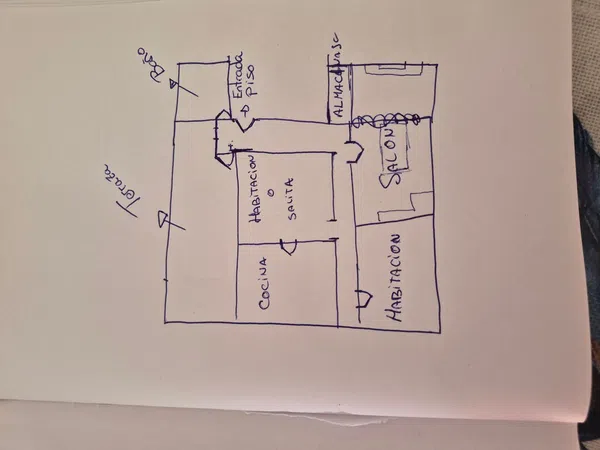 Baño
Entrada
piso
Terraza
SALON
HABITACION
O
SALITA
COCINA
HABITACION